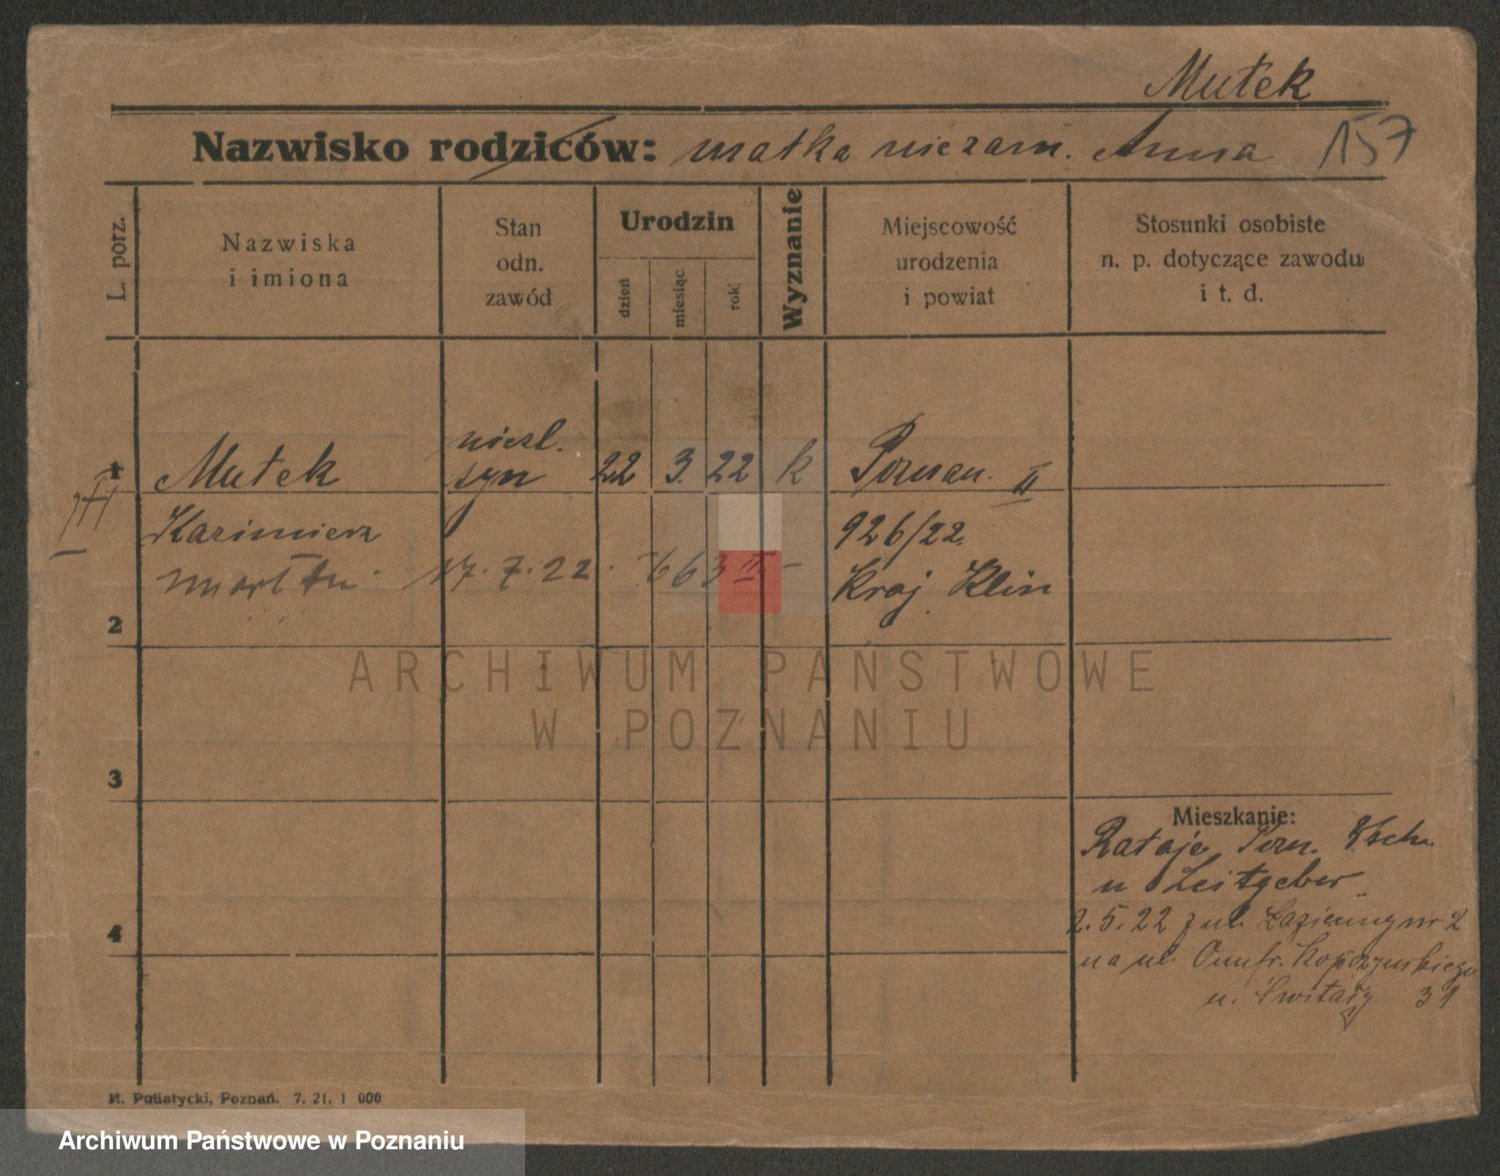 Mutek
Nazwisko rodziców: matka niezam. Anna 157
L. porz.
Nazwiska
i imiona
Stan
odn.
zawód
Urodzin
dzień
miesiąc
rok
Wyznanie
Miejscowość
urodzenia
i powiat
Stosunki osobiste
n. p. dotyczące zawodu
i t. d.
niesl.
1 Mutek syn 22 3. 22 k Poznan. II
Kazimierz 926/22.
17. 7. 22. 663 II Kraj. Klin
2
ARCHIWUM PAŃSTWOWE
W POZNANIU
3
Mieszkanie:
Rataje Pozn. Wsch.
u Leitgeber
4
2. 5. 22 z ul. nr 2
na ul. Onufr. Kopczynskiego
u. 31
M. Putiatycki, Poznań. 7. 21. 1 000
Archiwum Państwowe w Poznaniu